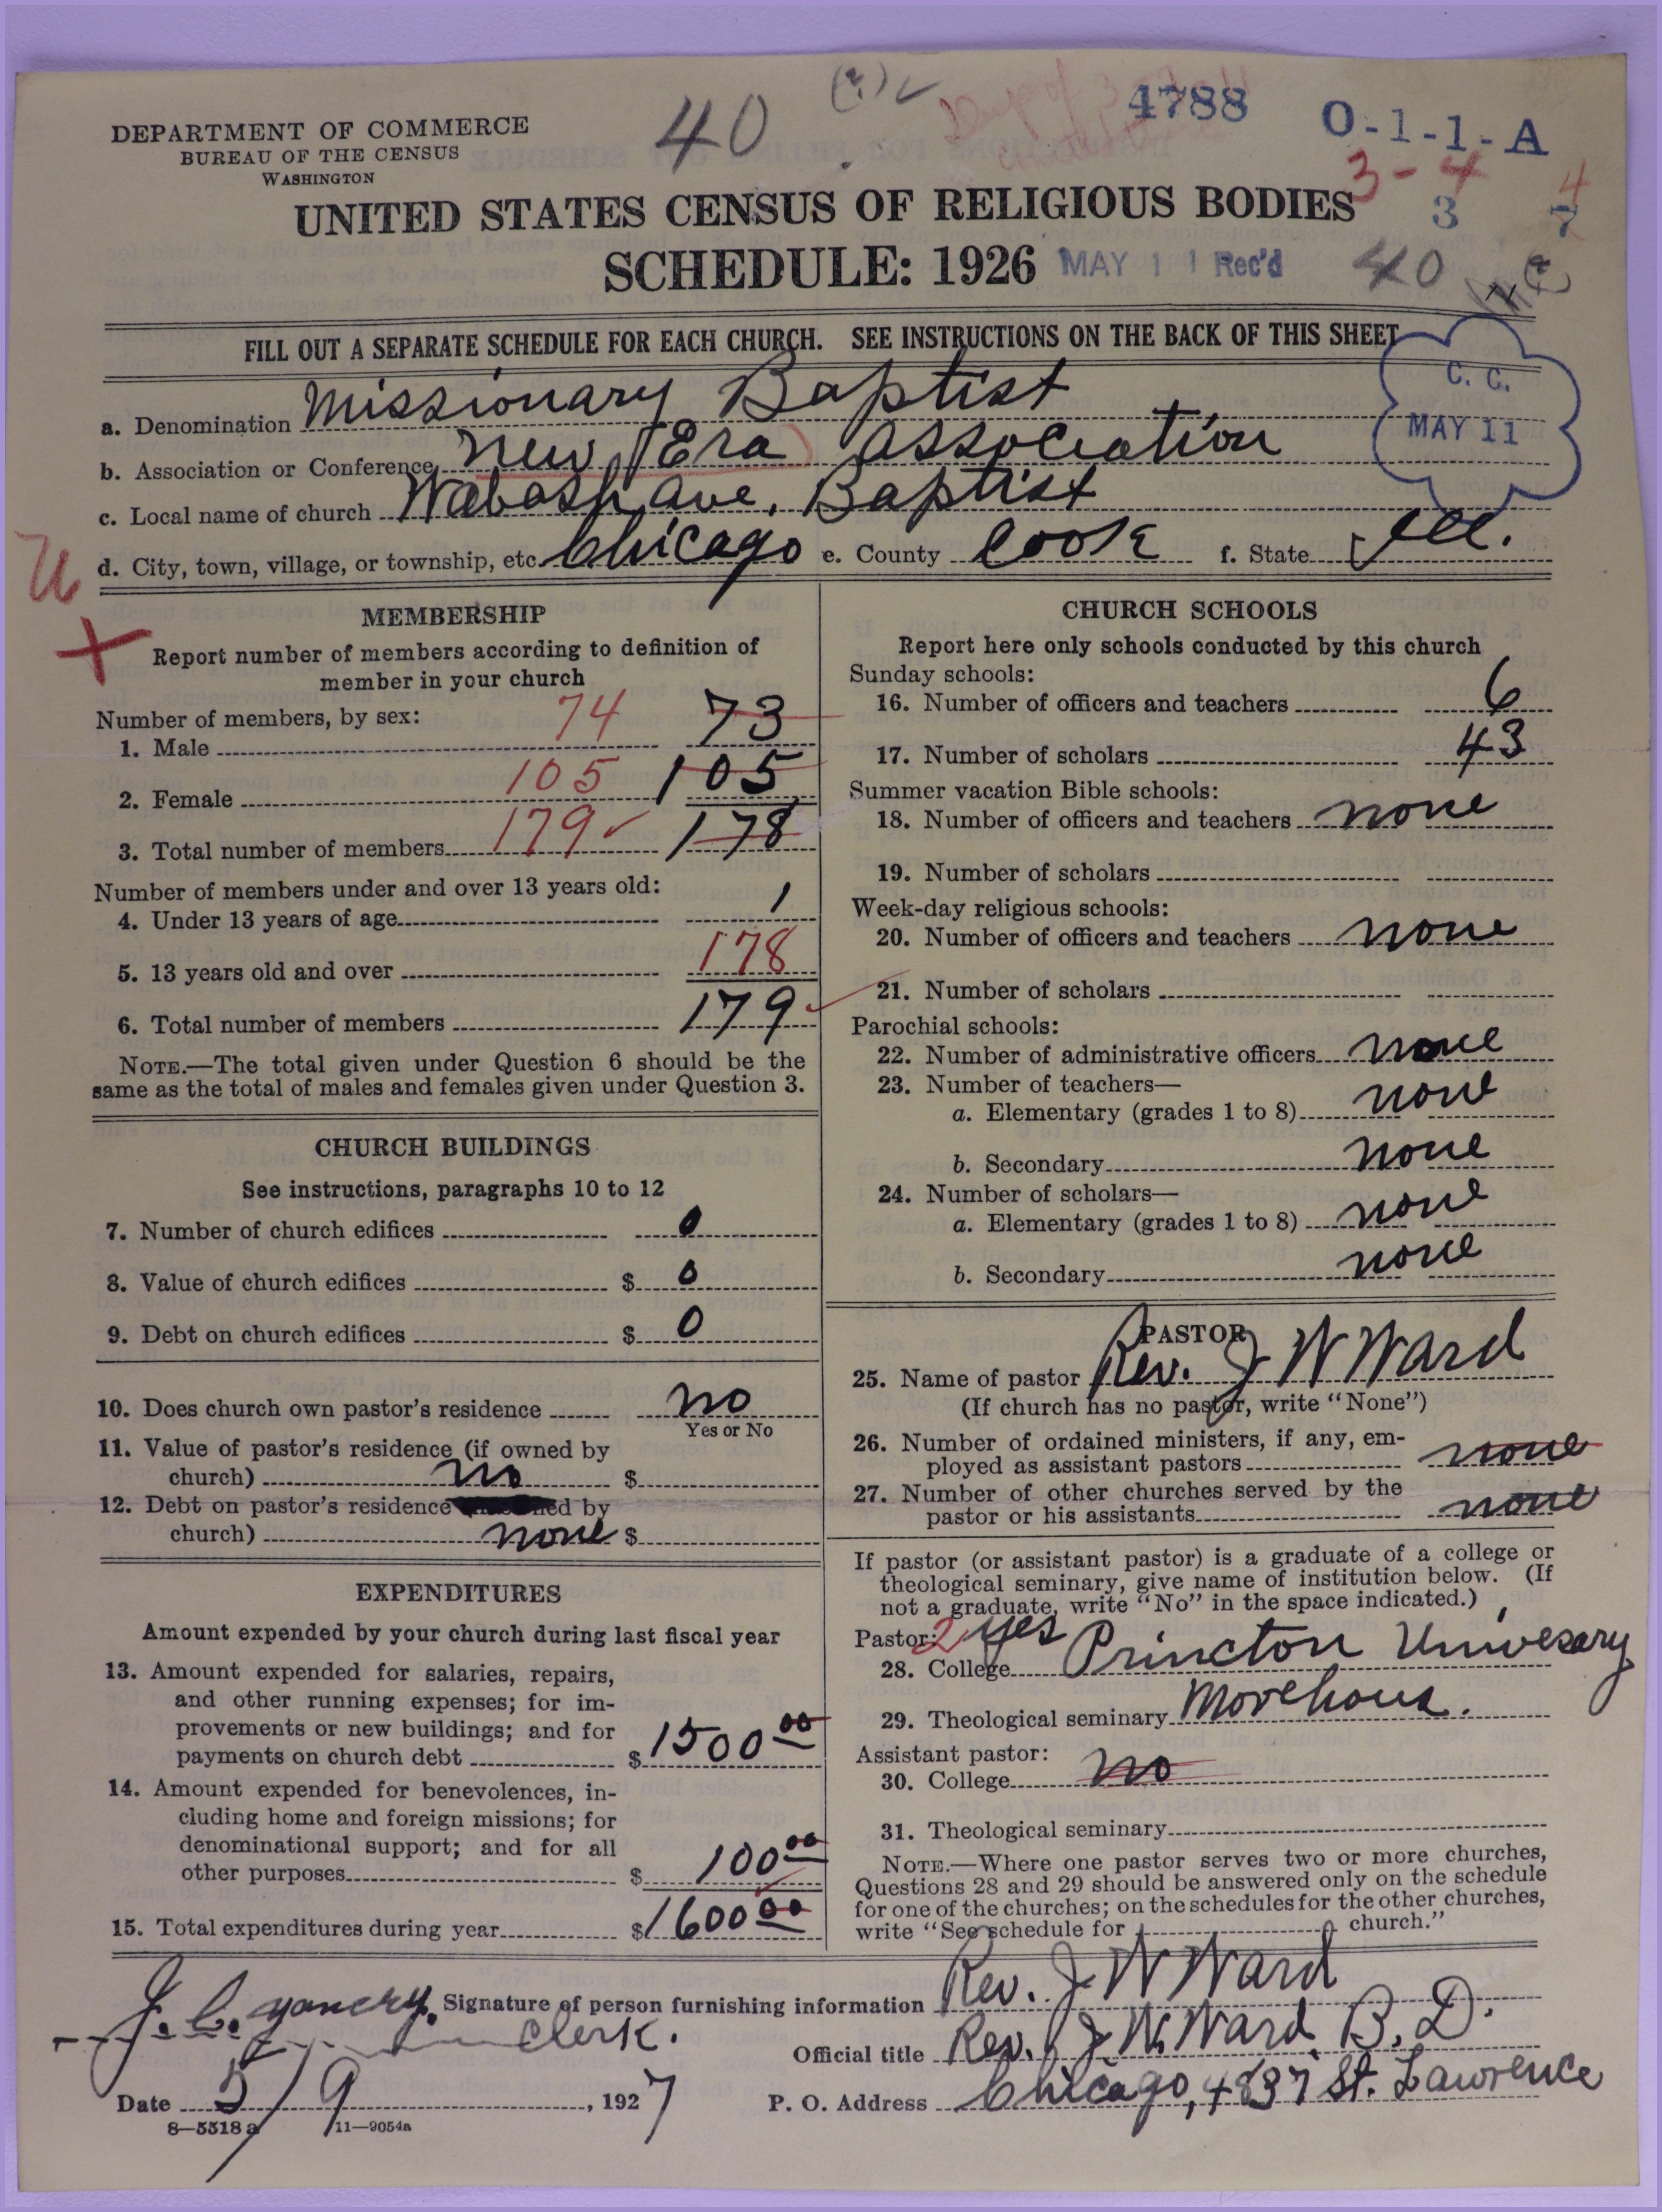 40 (?) ✓ 4788 O-1-1-A
DEPARTMENT OF COMMERCE
BUREAU OF THE CENSUS
WASHINGTON
3-4
UNITED STATES CENSUS OF RELIGIOUS BODIES 3 4 7
SCHEDULE: 1926 MAY 11 Rec'd 40
FILL OUT A SEPARATE SCHEDULE FOR EACH CHURCH. SEE INSTRUCTIONS ON THE BACK OF THIS SHEET
C. C.
MAY 11
a. Denomination Missionary Baptist
b. Association or Conference New Era Association
c. Local name of church Wabash Ave. Baptist
d. City, town, village, or township, etc. Chicago e. County Cook f. State Ill.
MEMBERSHIP
Report number of members according to definition of
member in your church
Number of members, by sex:
1. Male 74 73
2. Female 105 105
3. Total number of members 179 ✓ 178
Number of members under and over 13 years old:
4. Under 13 years of age 1
5. 13 years old and over 178
6. Total number of members 179
NOTE.—The total given under Question 6 should be the
same as the total of males and females given under Question 3.
CHURCH BUILDINGS
See instructions, paragraphs 10 to 12
7. Number of church edifices 0
8. Value of church edifices $ 0
9. Debt on church edifices $ 0
10. Does church own pastor's residence no
Yes or No
11. Value of pastor's residence (if owned by
church) no $
12. Debt on pastor's residence ed by
church) none $
EXPENDITURES
Amount expended by your church during last fiscal year
13. Amount expended for salaries, repairs,
and other running expenses; for im-
provements or new buildings; and for
payments on church debt $ 1500 00
14. Amount expended for benevolences, in-
cluding home and foreign missions; for
denominational support; and for all
other purposes $ 100 00
15. Total expenditures during year $ 1600 00
CHURCH SCHOOLS
Report here only schools conducted by this church
Sunday schools:
16. Number of officers and teachers 6
17. Number of scholars 43
Summer vacation Bible schools:
18. Number of officers and teachers none
19. Number of scholars
Week-day religious schools:
20. Number of officers and teachers none
21. Number of scholars
Parochial schools:
22. Number of administrative officers none
23. Number of teachers—
a. Elementary (grades 1 to 8) none
b. Secondary none
24. Number of scholars—
a. Elementary (grades 1 to 8) none
b. Secondary none
PASTOR
25. Name of pastor Rev. J W Ward
(If church has no pastor, write "None")
26. Number of ordained ministers, if any, em-
ployed as assistant pastors none
27. Number of other churches served by the
pastor or his assistants none
If pastor (or assistant pastor) is a graduate of a college or
theological seminary, give name of institution below. (If
not a graduate, write "No" in the space indicated.)
Pastor: 2 yes
28. College Princton Univesary
29. Theological seminary Morehous.
Assistant pastor:
30. College no
31. Theological seminary
NOTE.—Where one pastor serves two or more churches,
Questions 28 and 29 should be answered only on the schedule
for one of the churches; on the schedules for the other churches,
write "See schedule for church."
J. C. yancry. Signature of person furnishing information Rev. J W Ward
Clerk.
Official title Rev. J W. Ward B. D.
Date 5/9, 1927 P. O. Address Chicago, 4837 St. Lawrence
8—5518 a 11—9054a